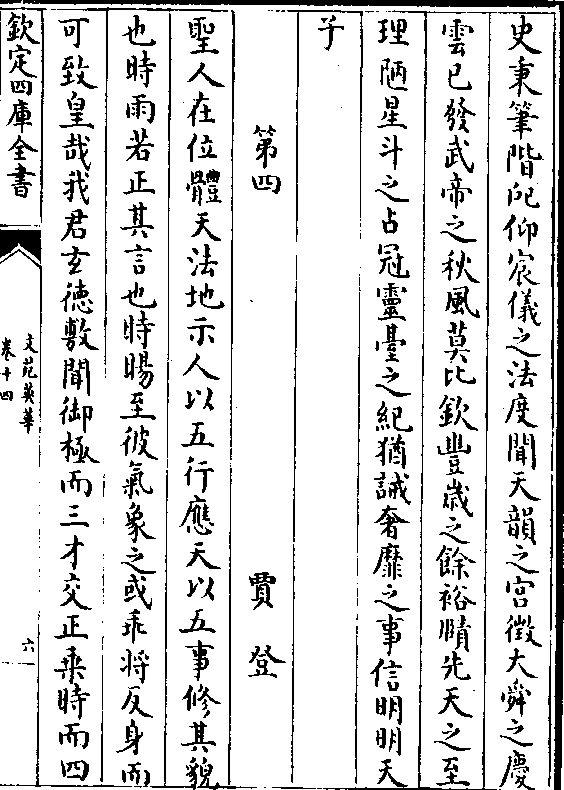 史秉筆階戺仰宸儀之法度聞天韻之宫徴大舜之慶
雲已發武帝之秋風莫比欽豐嵗之餘裕賾先天之至
理陋星斗之占冠靈臺之紀猶誡奢靡之事信明明天
子
第四 賈登
聖人在位體天法地示人以五行應天以五事修其貌
也時雨若正其言也時暘至彼氣象之或乖将反身而
可致皇哉我君玄德敷聞御極而三才交正乗時而四
欽定四庫全書
文苑英華
卷十四
六